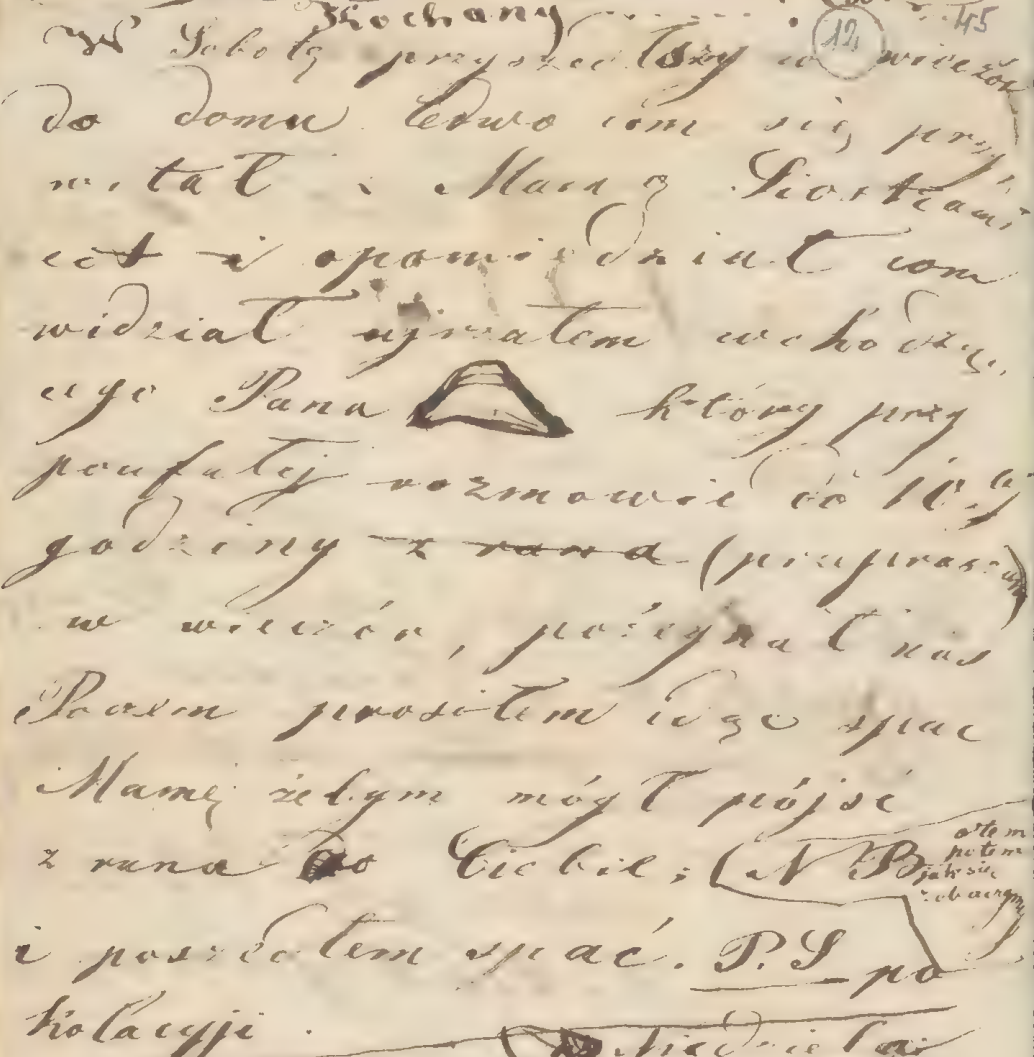 Kochany 45
W Sobotę przyszedłszy w 12 wieczór
do domu ledwo iom się przy
witał z Mamą Siostrami
ect i opowiedział com
widział ujrzałem wchodzą
cego Pana który przy
poufałej rozmowie do 10ej
godziny z rana (przepraszam)
w wieczór, pożegnał nas
Poczem prosiłem idąc spac
Mamę żebym mógł pójść
z rana do Ciebie; (NB
o tem
potem
jak się
zobaczymy
i poszedłem spać. P.S po
kolacyji.
Niedziela